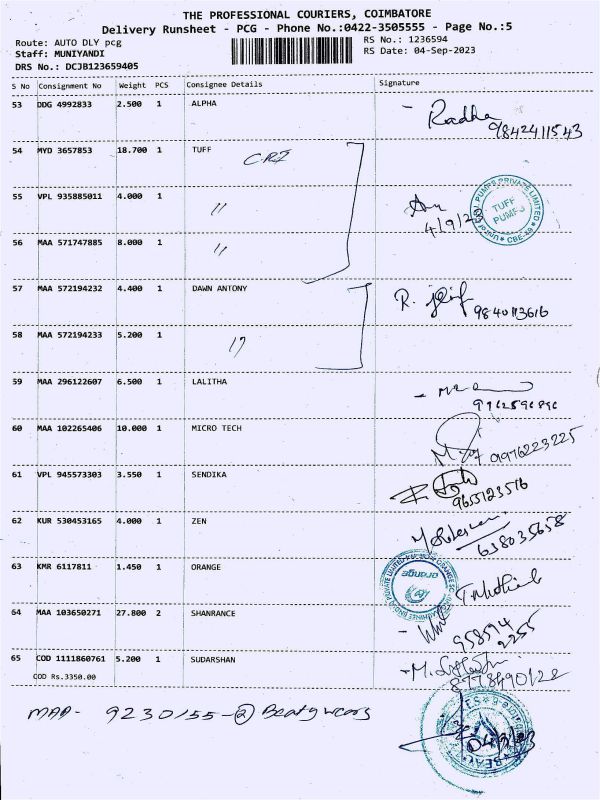 THE PROFESSIONAL COURIERS, COIMBATORE
Delivery Runsheet - PCG - Phone No.:0422-3505555 - Page No.:5
Route: AUTO DLY pcg
RS No.: 1236594
Staff: MUNIYANDI
RS Date: 04-Sep-2023
DRS No.: DCJB123659405
S No Consignment No Weight PCS Consignee Details Signature
53 DDG 4992833 2.500 1 ALPHA - Radha
9842411543
54 MYD 3657853 18.700 1 TUFF C.R.I
55 VPL 935885011 4.000 1 〃
4/9/23
TUFF PUMPS
PUMPS PRIVATE LIMITED
CBE-49
56 MAA 571747885 8.000 1 〃
57 MAA 572194232 4.400 1 DAWN ANTONY R.
9840113616
58 MAA 572194233 5.200 1 〃
59 MAA 296122607 6.500 1 LALITHA
60 MAA 102265406 10.000 1 MICRO TECH
61 VPL 945573303 3.550 1 SENDIKA
9655123516
62 KUR 530453165 4.000 1 ZEN
638035658
63 KMR 6117811 1.450 1 ORANGE
64 MAA 103650271 27.800 2 SHANRANCE
958594
2255
65 COD 1111860761 5.200 1 SUDARSHAN
8778490128
COD Rs.3350.00
MAA- 9230155-② Beaty wears